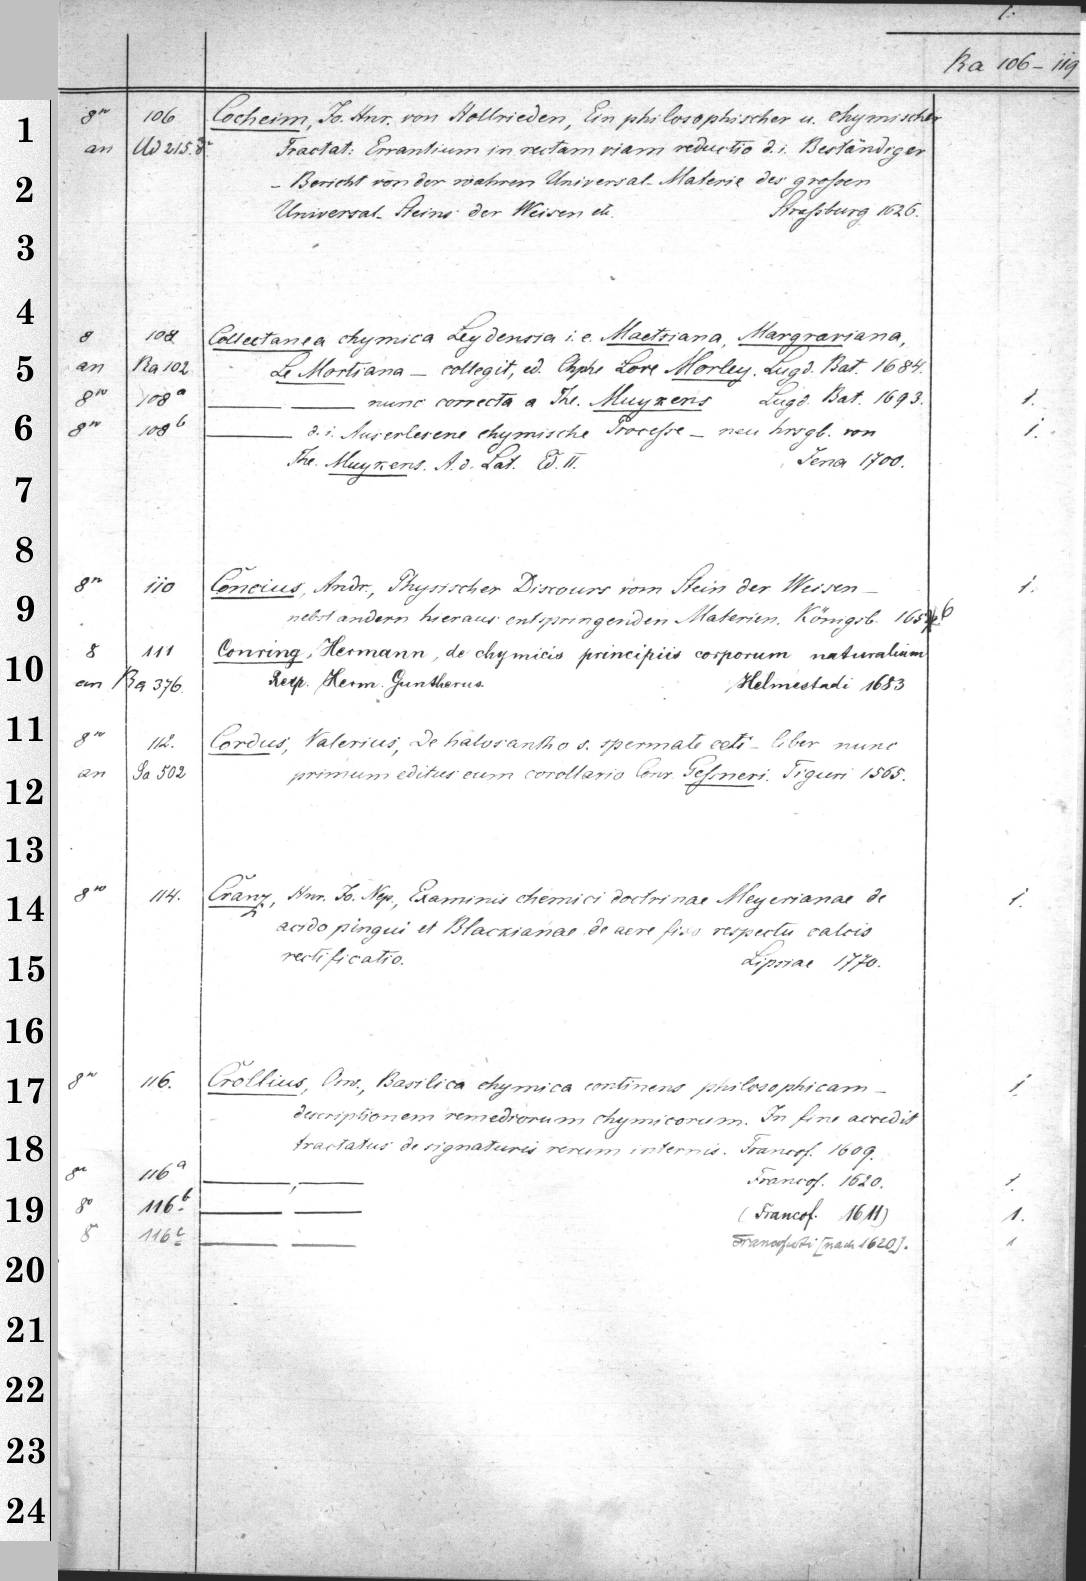 1.
Ra 106 – 119
8vo 106 Cocheim, Jo. Hnr. von Hollrieden, Ein philosophischer u. chymischer
an Ud 215.8° Tractat: Errantium in rectam viam reductio d. i. Beständiger
– Bericht von der wahren Universal-Materie des großen
Universal-Steins der Weisen etc. Straßburg 1626.
8 108 Collectanea chymica Leydensia i. e. Maetsiana, Margraviana,
an Ra 102 Le Mortiana – collegit, ed. Chphs Love Morley. Lugd. Bat. 1684.
8vo 108a ——— ——— nunc correcta a Th. Muykens Lugd. Bat. 1693. 1.
8vo 108b ——— d. i. Auserlesene chymische Processe – neu hrsgb. von 1.
Th. Muykens. A. d. Lat. Ed. II. Jena 1700.
8vo 110 Concius, Andr., Physischer Discours vom Stein der Weisen – 1.
nebst andern hieraus entspringenden Materien. Königsb. 1656
8 111 Conring, Hermann, de chymicis principiis corporum naturalium
an Ra 376. Resp. Herm. Guntherus. Helmestadi 1683
8vo 112. Cordus, Valerius, De halosantho s. spermate ceti – liber nunc
an Sa 502 primum editus cum corollario Conr. Gessneri. Tiguri 1565.
8vo 114. Cranz, Hnr. Jo. Nep., Examinis chemici doctrinae Meyerianae de 1.
acido pingui et Blackianae de aere fixo respectu calcis
rectificatio. Lipsiae 1770.
8vo 116. Crollius, Osw., Basilica chymica continens philosophicam – 1.
descriptionem remediorum chymicorum. In fine accedit
tractatus de signaturis rerum internis. Francof. 1609.
8vo 116a ———, ——— Francof. 1620. 1.
8o 116b ——— ——— (Francof. 1611) 1.
8° 116c ——— ——— Francofurti [nach 1620]. 1
1
2
3
4
5
6
7
8
9
10
11
12
13
14
15
16
17
18
19
20
21
22
23
24